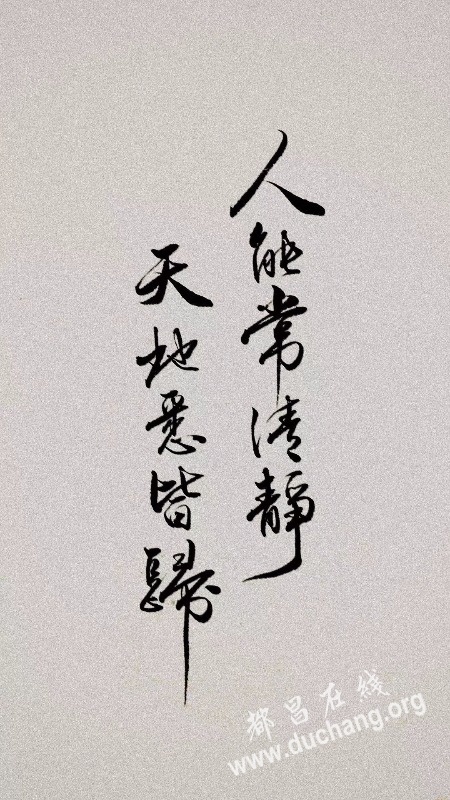 人能常清靜
天地悉皆歸
都昌在线
www.duchang.org